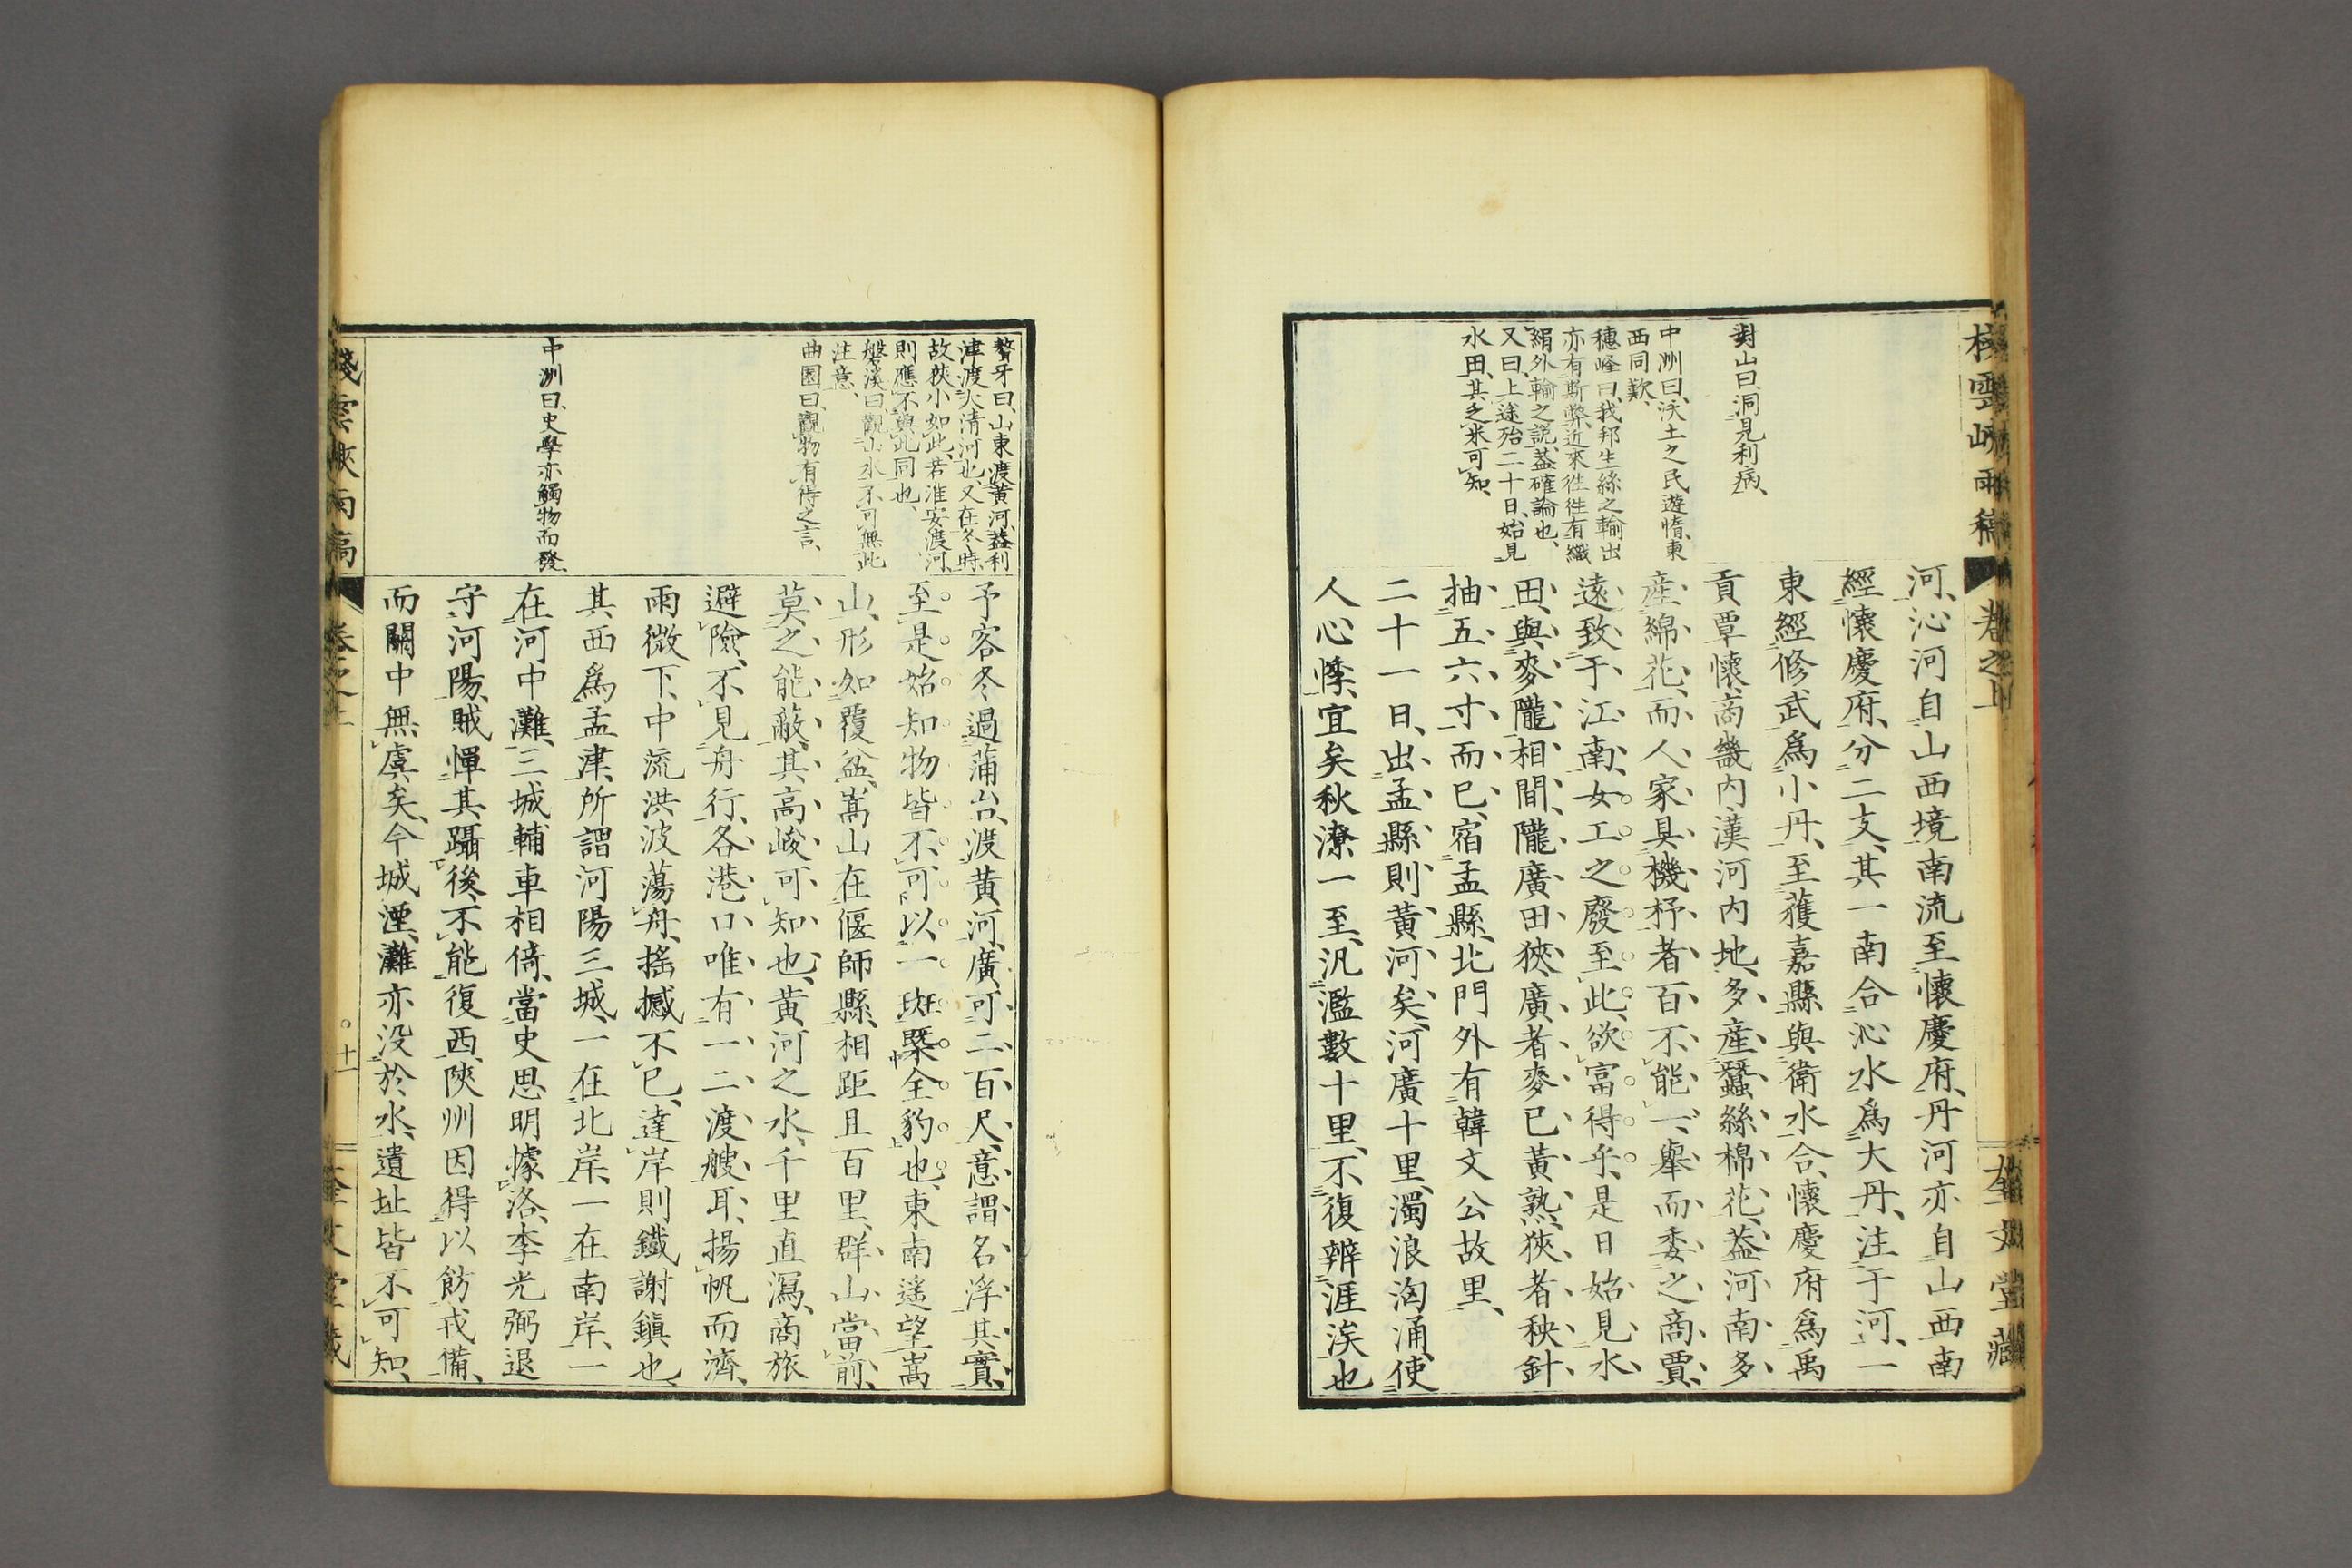 棧雲峽雨稿
卷之上
奎文堂藏
對山曰、洞見利病、
中洲曰、沃土之民遊惰、東
西同歎、
穗峰曰、我邦生絲之輸出
亦有斯弊、近來徃徃有織
絹外輸之説、葢確論也、
又曰、上途殆二十日、始見
水田、其乏米可知、
河、沁河自山西境南流至懷慶府、丹河亦自山西南
經懷慶府、分二支、其一南合沁水爲大丹、注于河、一
東經修武爲小丹、至蒦嘉縣與衛水合、懷慶府爲禹
貢覃懷、商畿內、漢河內地、多產蠶絲棉花、葢河南多
產綿花、而人家具機杼者百不能一、舉而委之商賈、
遠致于江南、女工之廢至此、欲富得乎、是日始見水
田、與麥隴相間、隴廣田狹、廣者麥已黃熟、狹者秧針
抽五六寸而已、宿孟縣、北門外有韓文公故里、
二十一日、出孟縣則黃河矣、河廣十里、濁浪洶涌、使
人心悸、宜矣秋潦一至、汎濫數十里、不復辨涯涘也
予客冬過蒲台、渡黃河、廣可二百尺、意謂名浮其實、
至是始知物皆不可以一斑槩全豹也、東南遙望嵩
山、形如覆盆、嵩山在偃師縣、相距且百里、群山當前、
莫之能蔽、其高峻可知也、黃河之水、千里直瀉、商旅
避險、不見舟行、各港口唯有一二渡艘耳、揚帆而濟、
雨微下、中流洪波蕩舟、搖撼不已、達岸則鐵謝鎭也、
其西爲孟津、所謂河陽三城、一在北岸、一在南岸、一
在河中灘、三城輔車相倚、當史思明據洛、李光弼退
守河陽、賊憚其躡後、不能復西、陝州因得以飭戎備、
而關中無虞矣、今城湮灘亦沒於水、遺址皆不可知、
聱牙曰、山東渡黃河、葢利
津渡大清河也、又在冬時、
故狹小如此、若淮安渡河、
則應不與此同也、
磐溪曰、觀山水不可無此
注意、
曲園曰、觀物有得之言、
中洲曰、史學亦觸物而發、
棧雲峽雨稿
卷之上
十一
奎文堂藏